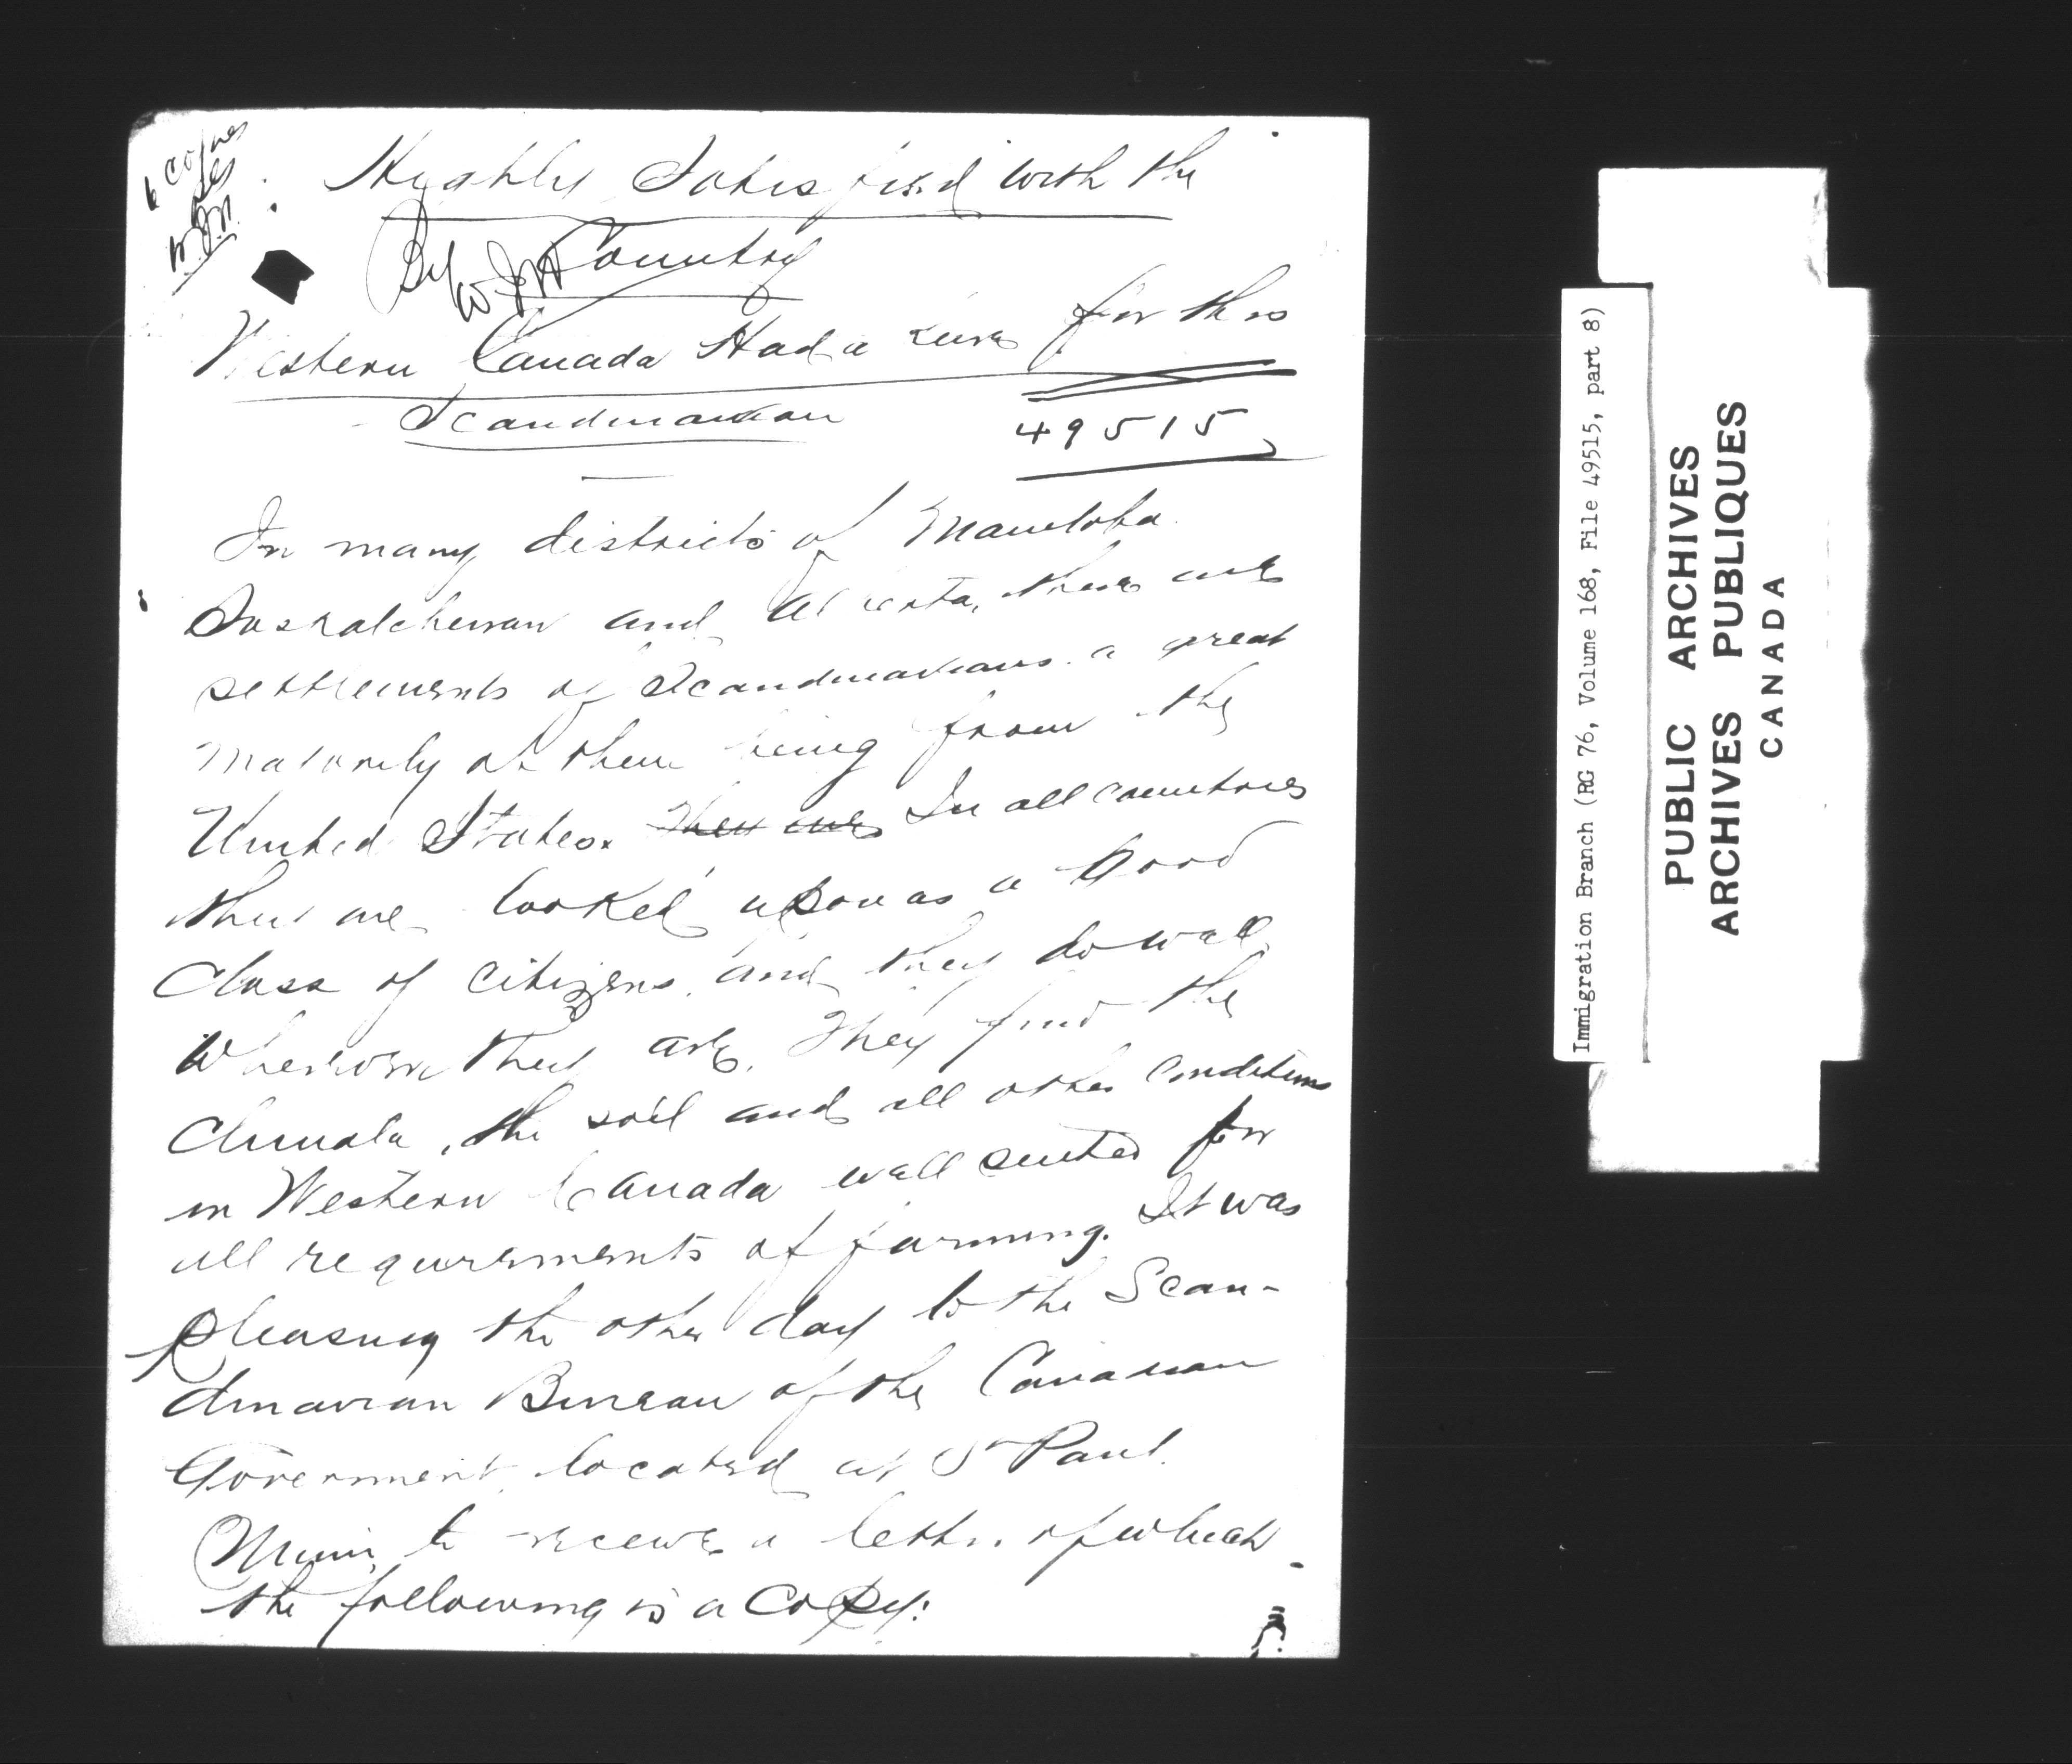 6 copies
W.J.W.
Highly Satisfied with the
Country
By W.J.W
Western Canada Had a cure for this
Scandinavian
49515
In many districts of Manitoba
Saskatchewan and Alberta, there are
settlements of Scandinavians. a great
majority of them being from the
United States. In all countries
they are looked upon as a good
class of citizens, and they do well
wherever they are. They find the
climate, the soil and all other conditions
in Western Canada well suited for
all requirements of farming. It was
pleasing the other day to the Scan-
dinavian Bureau of the Canadian
Government, located at St Paul.
Minn, to receive a letter, of which
the following is a copy:
Immigration Branch (RG 76, Volume 168, File 49515, part 8)
PUBLIC ARCHIVES
ARCHIVES PUBLIQUES
CANADA